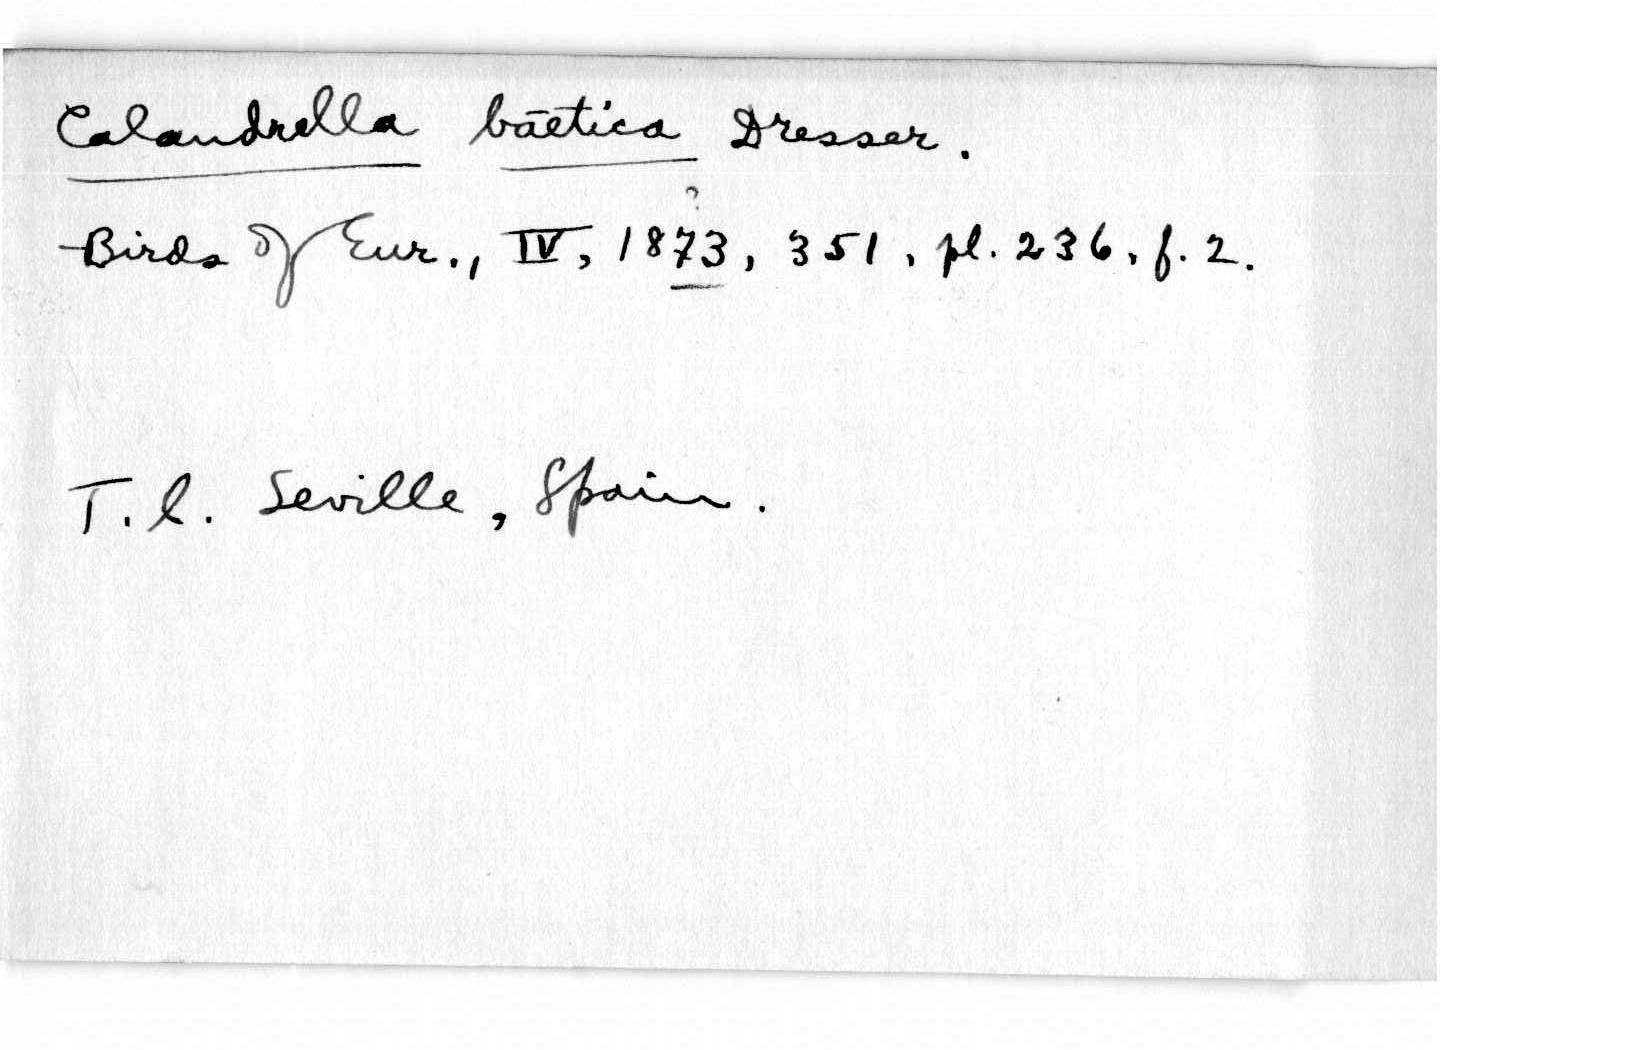 Calandrella bāetica Dresser.
?
Birds of Eur., IV, 1873, 351, pl. 236, f. 2.
T. l. Seville, Spain.